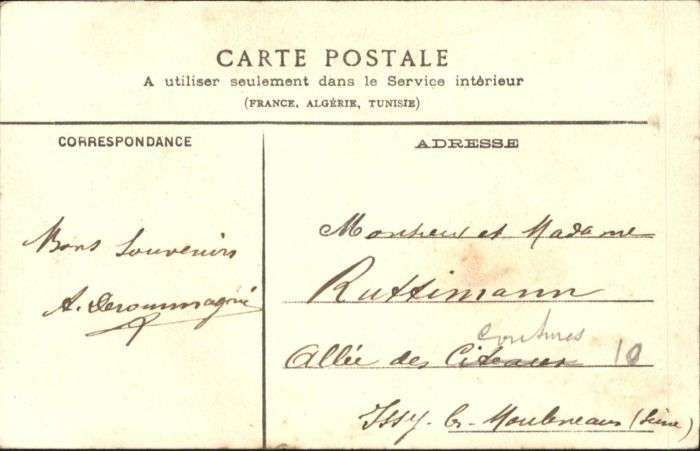 CARTE POSTALE
A utiliser seulement dans le Service intérieur
(FRANCE, ALGÉRIE, TUNISIE)
CORRESPONDANCE
Bons Souvenirs
ADRESSE
Monsieur et Madame
Ruttimann
Allée des Citeaux 10
Issy-les-Moulineaux (Seine)